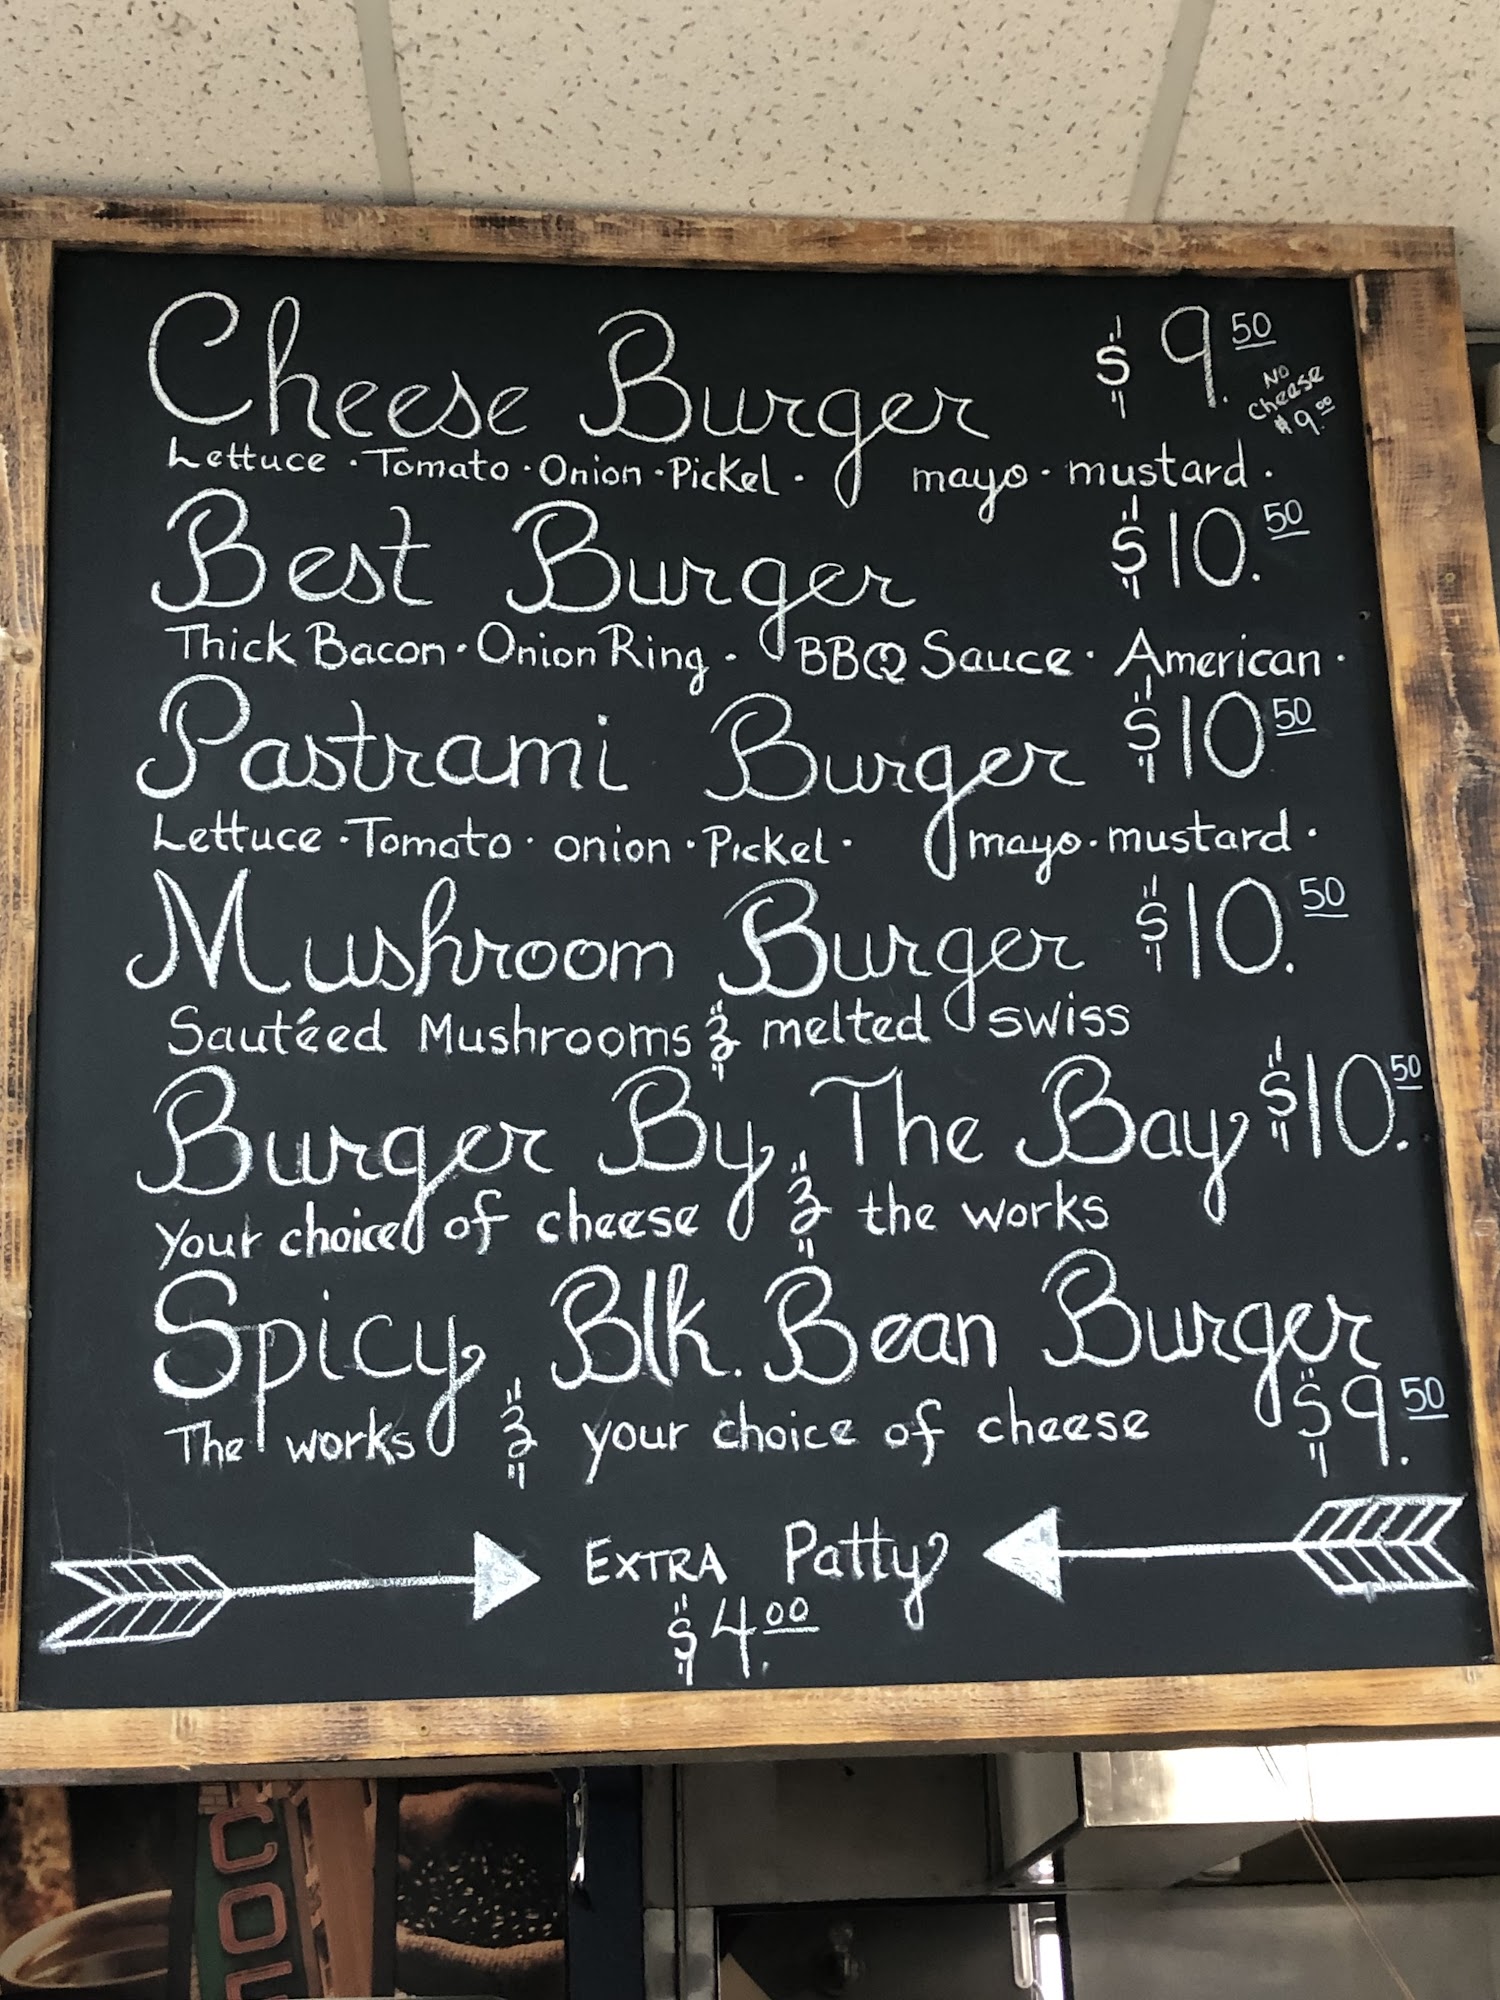 Cheese Burger $9.50
No Cheese $9.00
Lettuce · Tomato · Onion · Pickel · mayo · mustard ·
Best Burger $10.50
Thick Bacon · Onion Ring · BBQ Sauce · American ·
Pastrami Burger $10.50
Lettuce · Tomato · onion · Pickel · mayo · mustard ·
Mushroom Burger $10.50
Sautéed Mushrooms & melted swiss
Burger By The Bay $10.50
Your choice of cheese & the works
Spicy Blk. Bean Burger
The works & your choice of cheese $9.50
EXTRA Patty
$4.00
COF